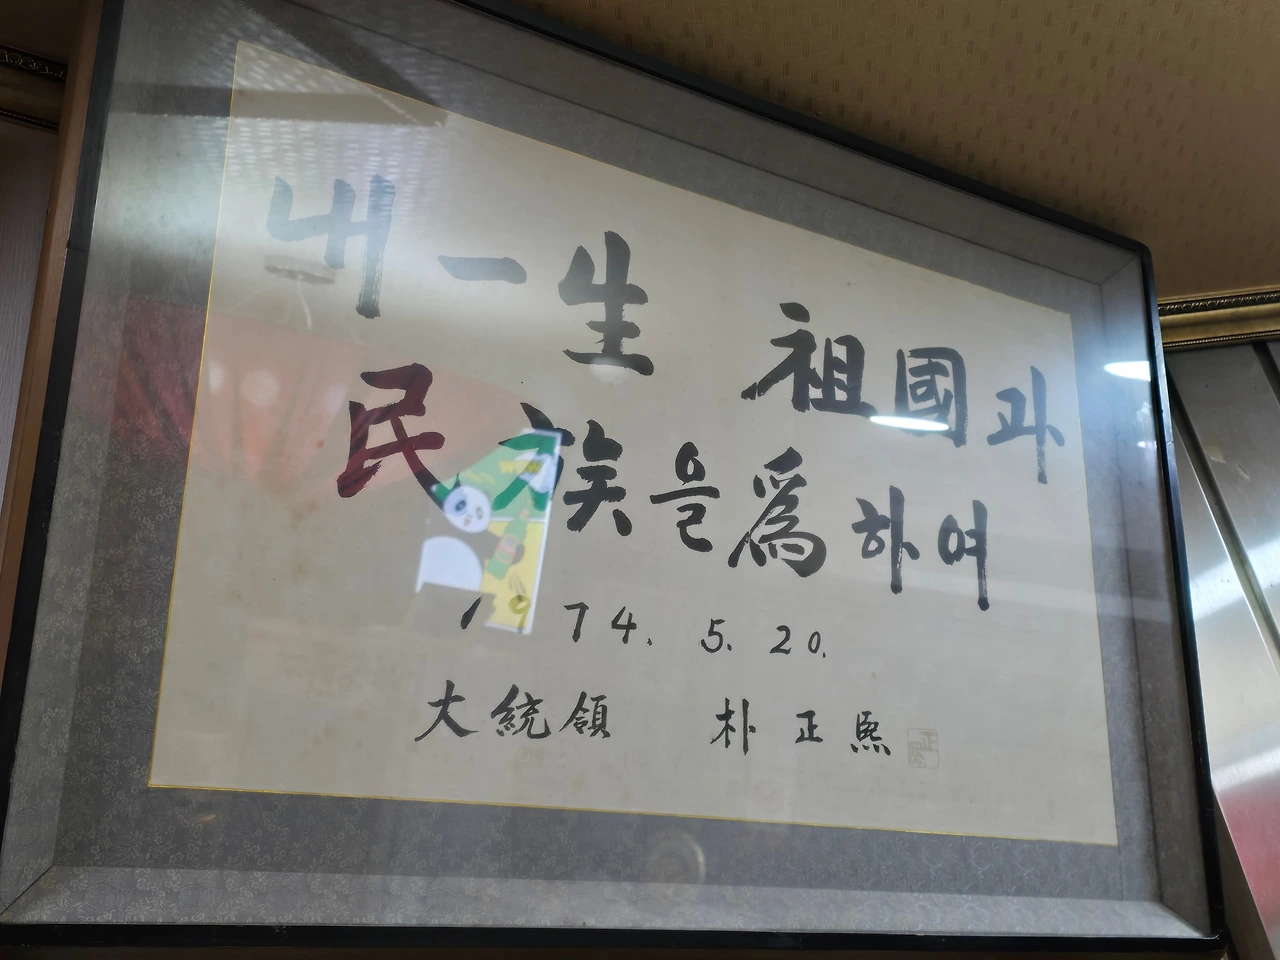 내 一 生 祖國과
民族을 爲하여
1974. 5. 20.
大統領 朴正熙
WOW